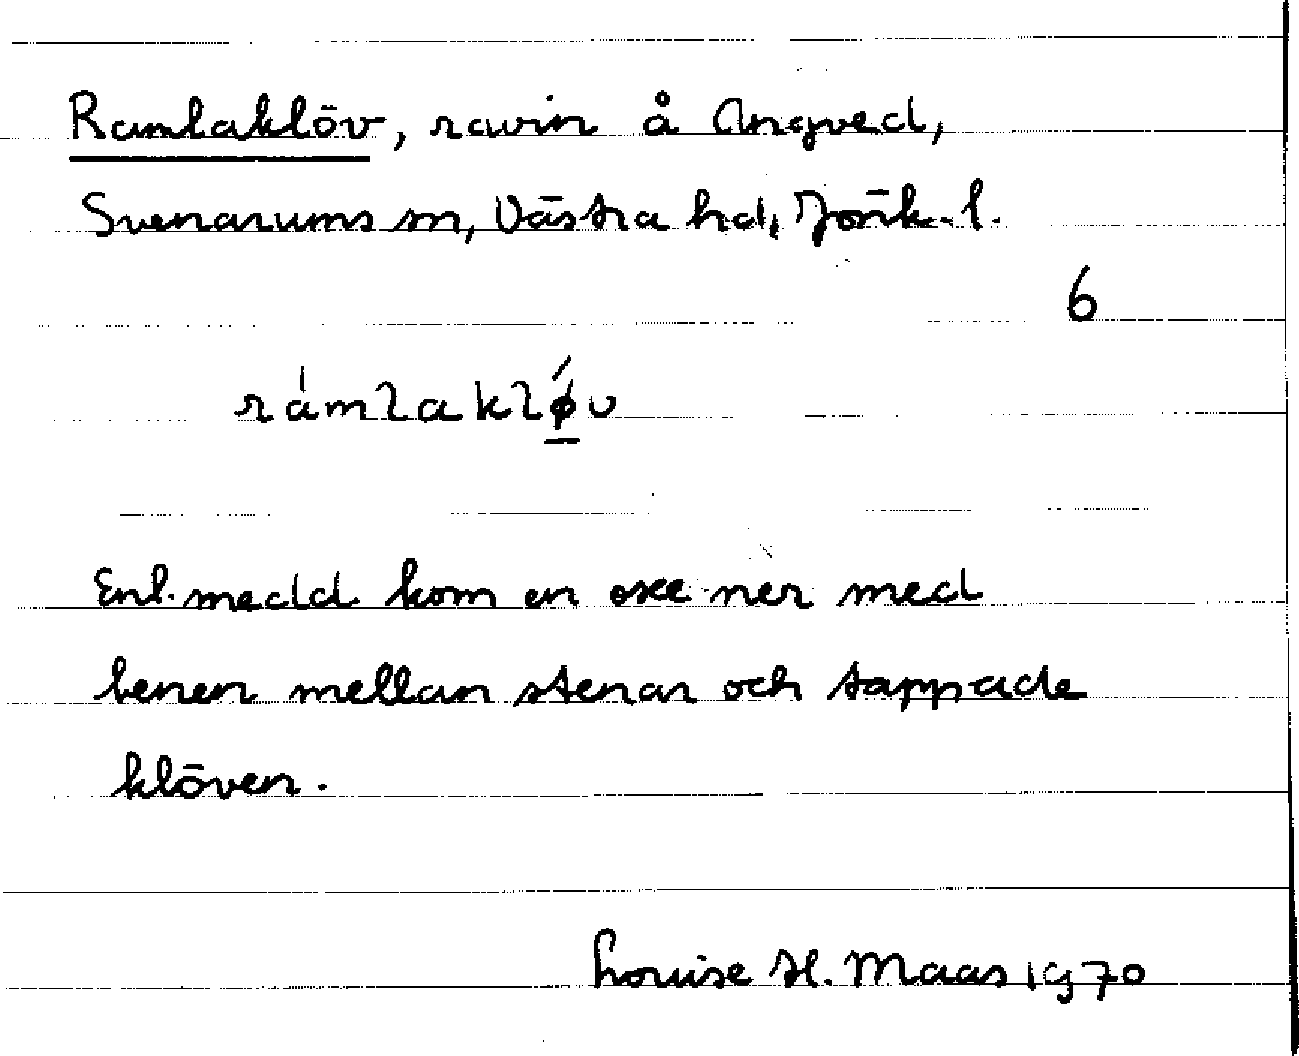 Ramlaklöv, ravin å Angved,
Svenarums sn, Västra hd, Jönk. l.
6
rámlaklǿv
Enl. medd kom en oxe ner med
benen mellan stenar och tappade
klöven.
Louise H. Maas 1970